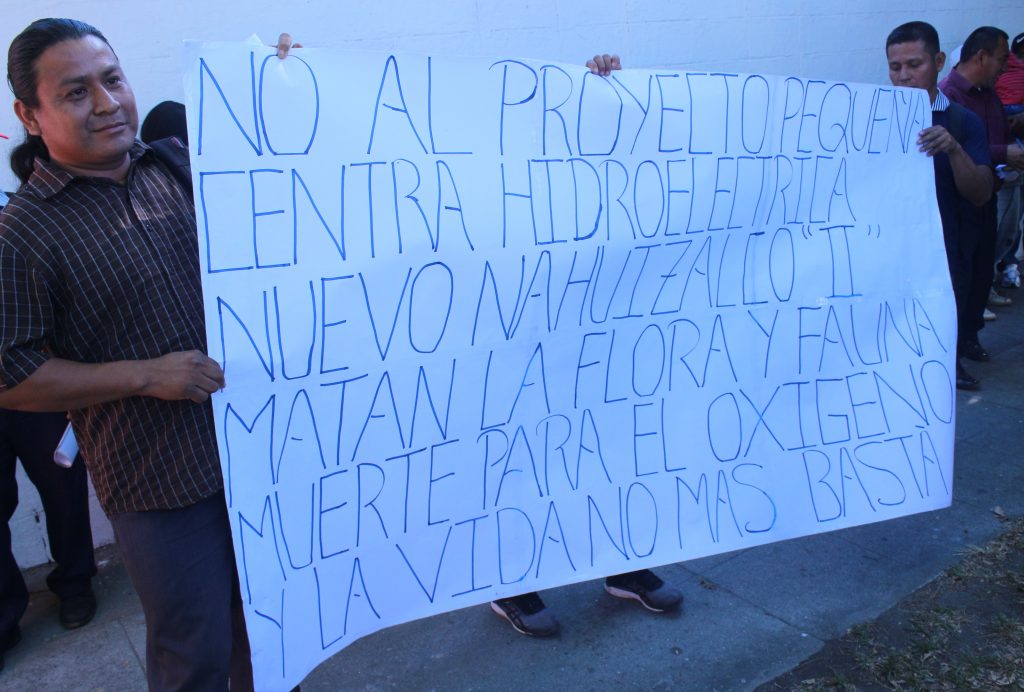 NO AL PROYECTO PEQUEÑA
CENTRA HIDROELECTRICA
NUEVO NAHUIZALCO "II"
MATAN LA FLORA Y FAUNA
MUERTE PARA EL OXIGENO
Y LA VIDA NO MAS BASTA